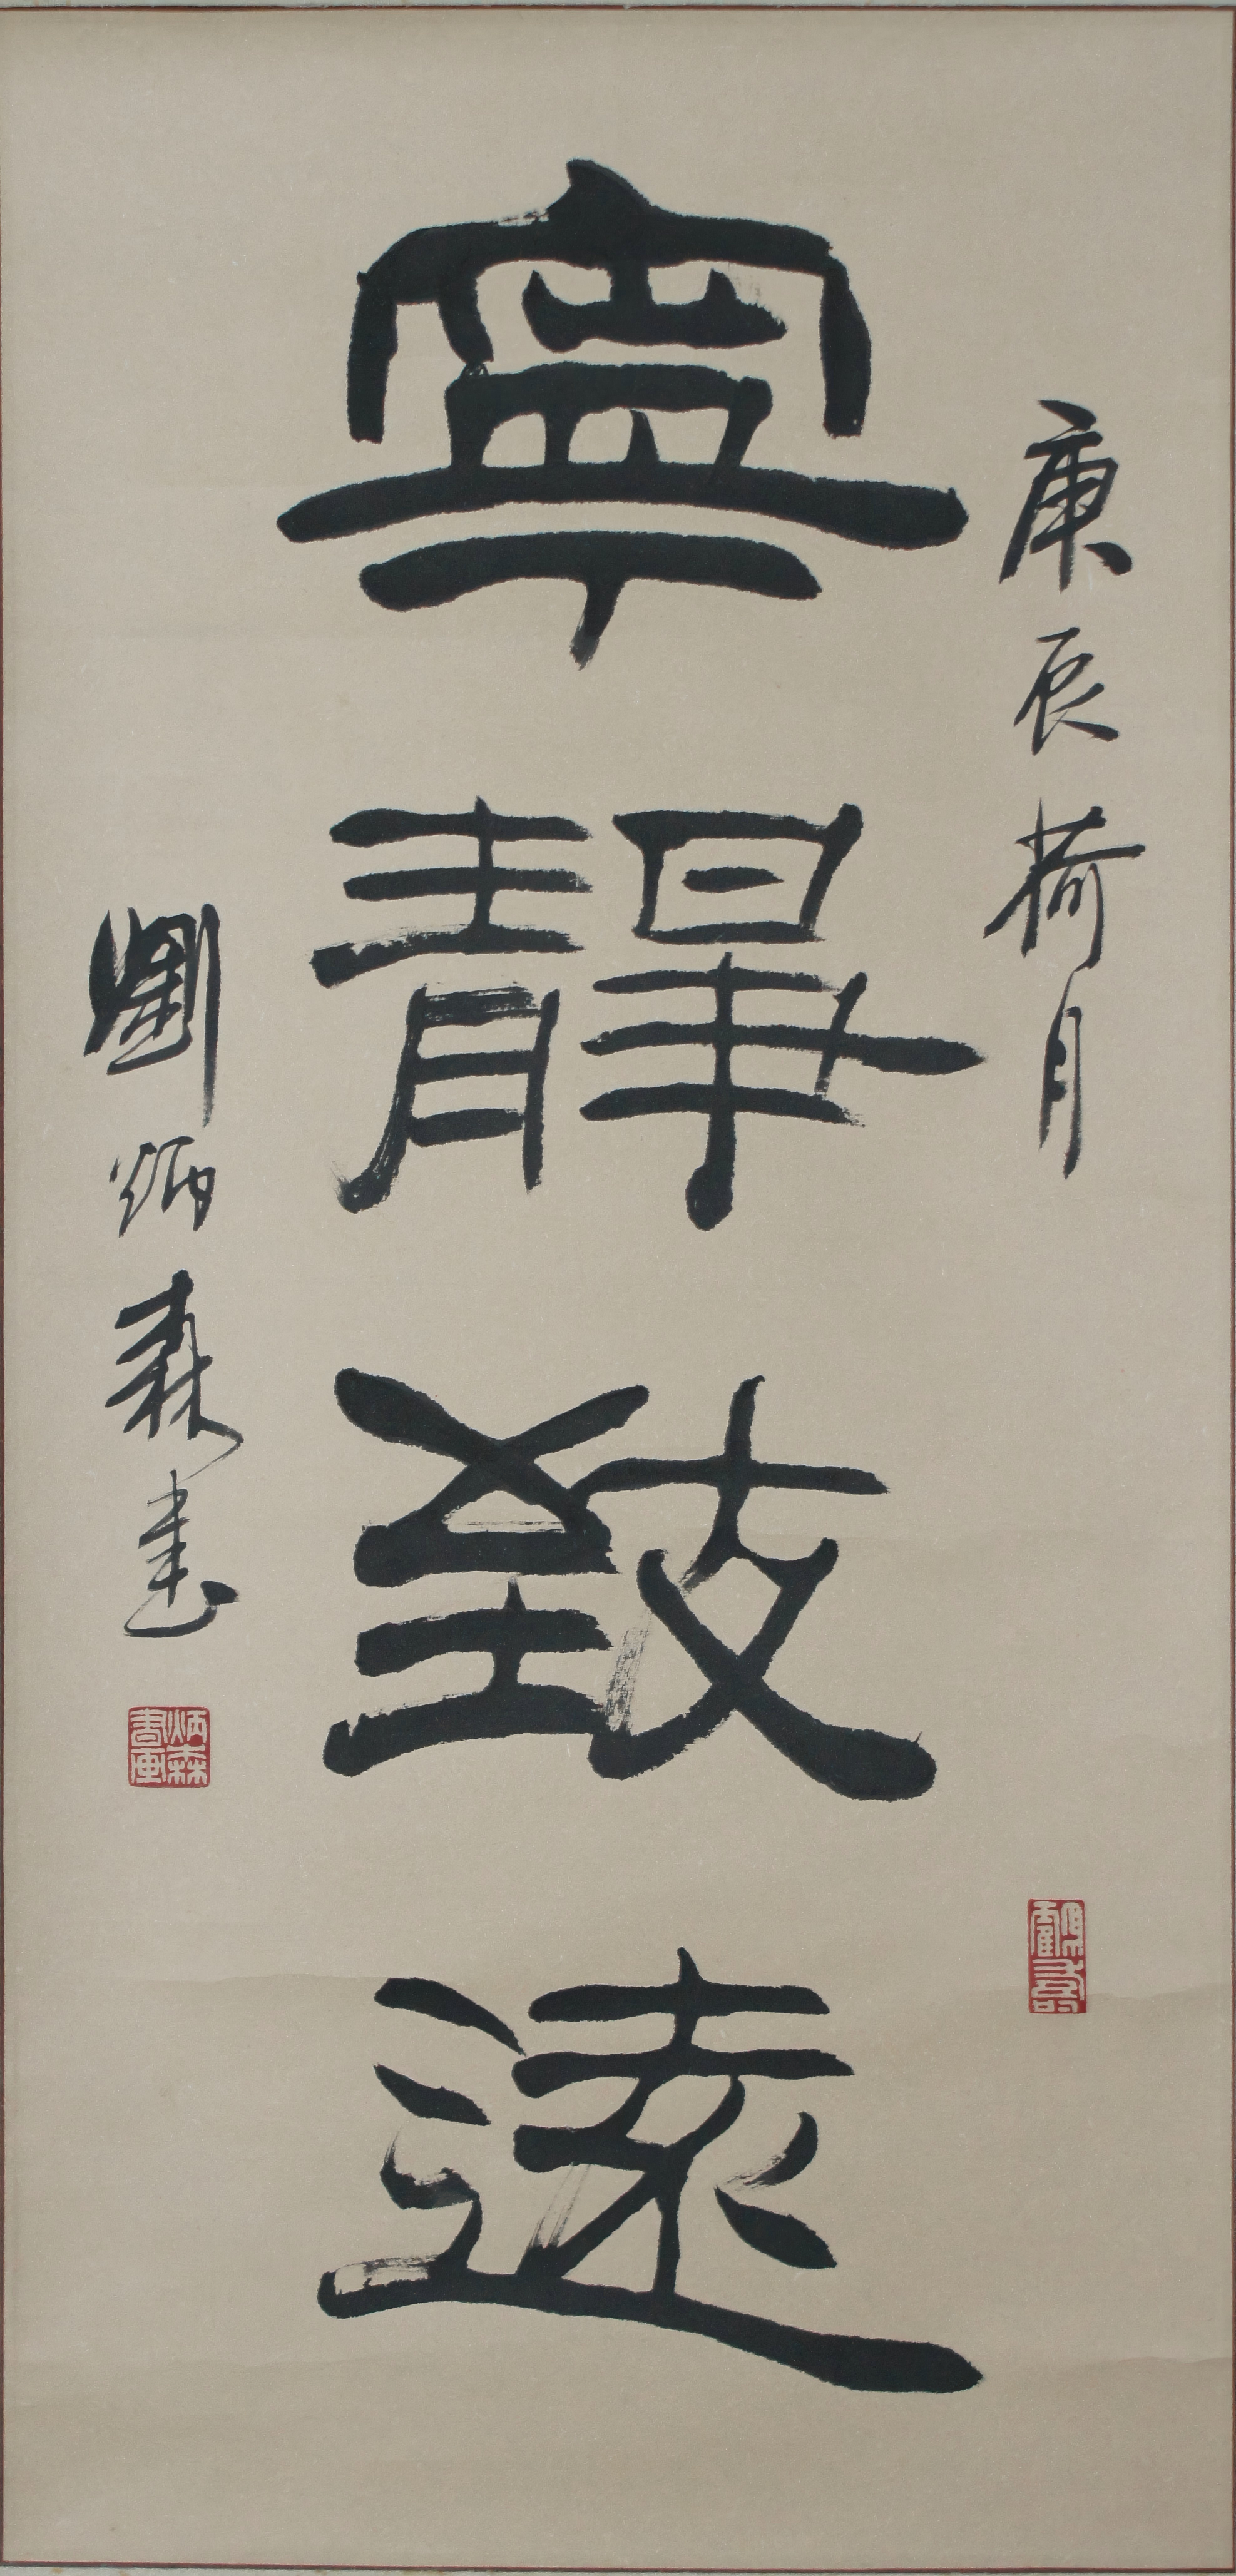 庚辰荷月
寧靜致遠
劉炳森書
炳森書畫